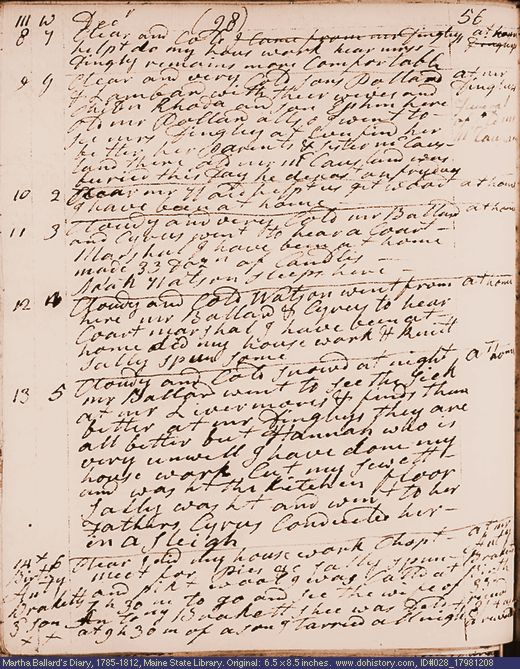 m W Dec^r (28) 56
8 7 Clear and Cold. I Came from mr Dingleys at home
helpt do my hous work hear mrss
Dingly remains more Comfortable
9 G Clear and very Cold Sons Ballard at mr
& Lambard with their wives and Dingleys
Rhoda and son Ephm here
old mr Ballard allso I went to
see mrs Dingley at Evn find her
better her parents & Sister
and there mr mCausland was
buried this Day he deceast on fryday
10 2 Clear mr helpt us get wood at home
I have been at home
11 3 Cloudy and very Cold mr Ballard at home
and Cyrus went to hear a Court
Marshal I have been at home
made 33 Dozn of Candles
Noah Watson Sleeps here
12 4 Cloudy and Cold Watson went from at home
here mr Ballard & Cyrus to hear
Coart marshal I have been at
home did my house work & Knitt
Sally spun some
13 5 Cloudy and Cold Snowd at night at home
mr Ballard went to see the Sick
at mr Livermores & finds them
better at mr Dingleys they are
all better but Hannah who is
very unwell I have done my
house work Cut my Sweett
and washt the kitchen floor
Sally washt and went to her
Fathers Cyrus Conducted her
in a Sleigh
14 + 6 Clear I did my house work Chopt at mr
meet for Pies &c Sally spun
and pikt wool I was Calld at
Brakett 7h 30m to go and see the wife of
3d son Brackett shee was Delt
X X at 9h 30m of a son I tarried all night
Martha Ballard's Diary, 1785-1812, Maine State Library. Original: 6.5 x 8.5 inches. www.dohistory.com, ID#028_17981208